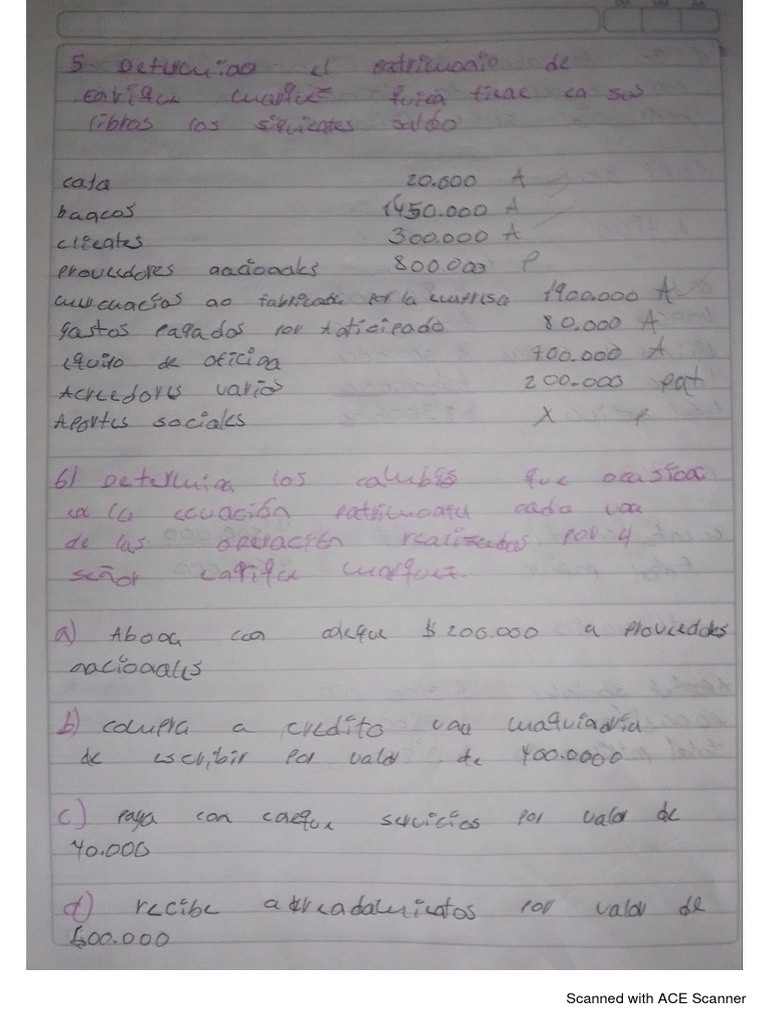 5 Determino el patrimonio de
enrique marquez quien tiene en sus
libros los siguientes saldo
caja 20.000 A
bancos 1450.000 A
clientes 300.000 A
proveedores nacionales 800.000 P
mercancias no fabricada por la empresa 1900.000 A
gastos pagados por Anticipado 80.000 A
equipo de oficina 700.000 A
Acreedores varios 200.000 pat
Aportes sociales X
6) Determina los cambios que ocasiona
en la ecuación patrimonial cada una
de las operación realizadas por el
señor enrique marquez.
a) Abona con cheque $ 200.000 a proveedores
nacionales
b) compra a credito una maquinaria
de escribir por valor de 400.0000
c) paga con cheque servicios por valor de
40.000
d) recibe arreadamientos por valor de
$00.000
Scanned with ACE Scanner